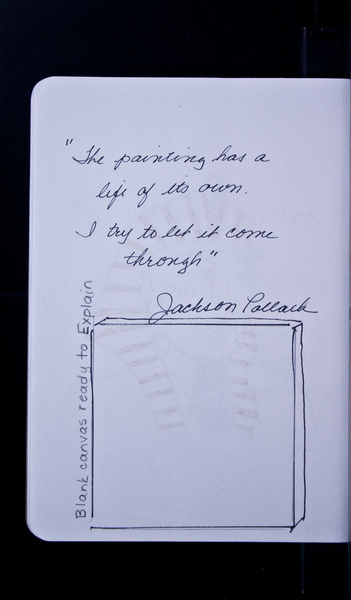 "The painting has a
life of its own.
I try to let it come
through"
Jackson Pollack
Blank canvas ready to Explain